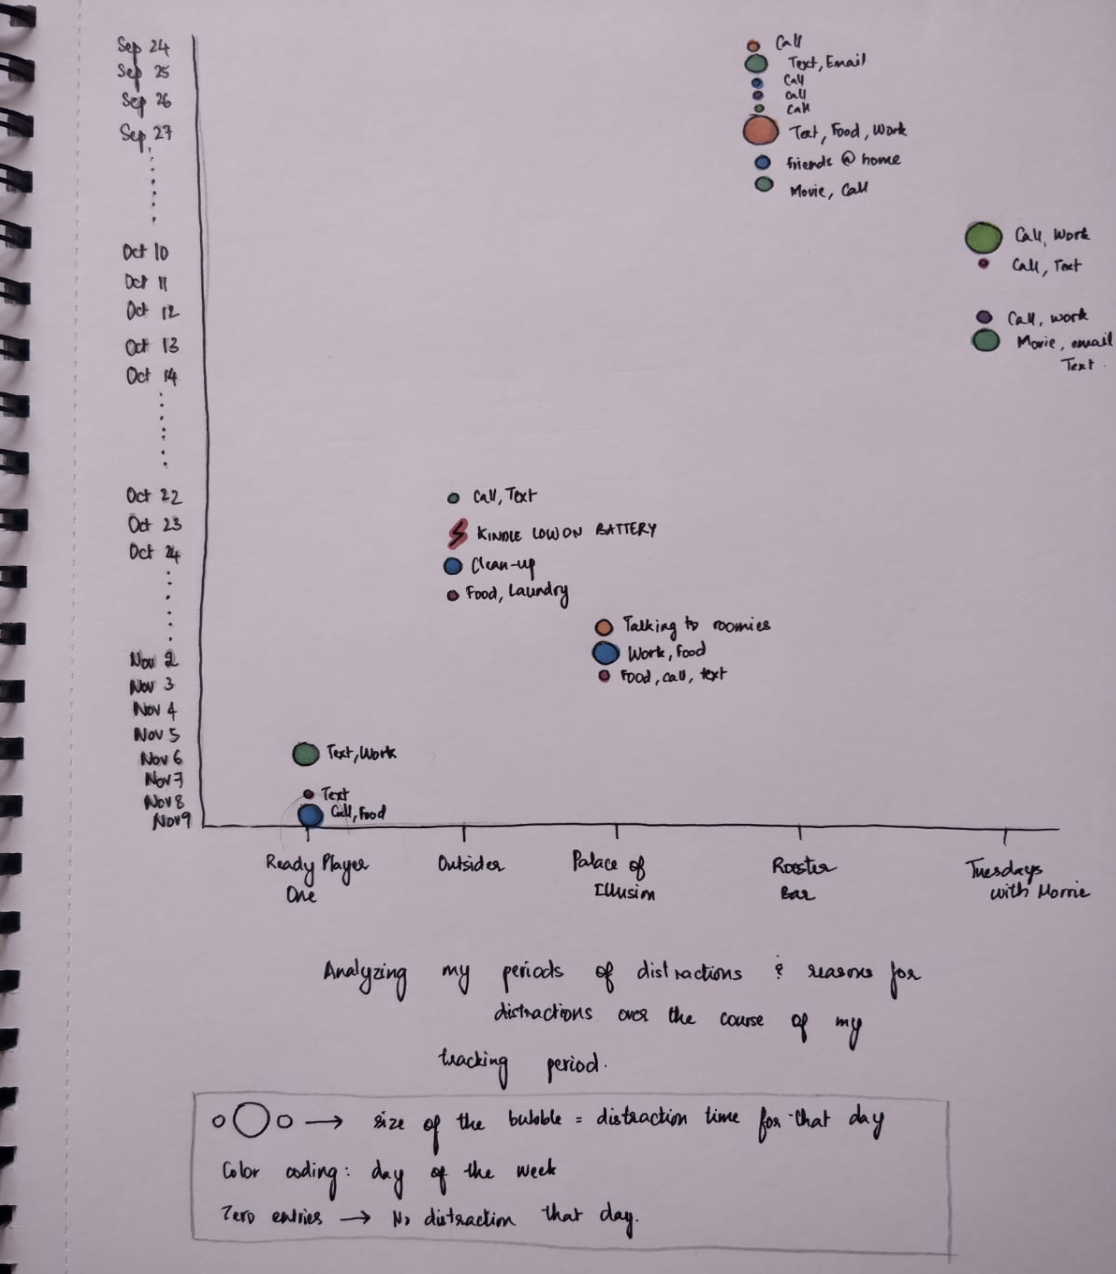 Sep 24
Sep 25
Sep 26
Sep 27
Oct 10
Oct 11
Oct 12
Oct 13
Oct 14
Oct 22
Oct 23
Oct 24
Nov 2
Nov 3
Nov 4
Nov 5
Nov 6
Nov 7
Nov 8
Nov 9
Call
Text, Email
Call
Call
Call
Text, Food, Work
friends @ home
Movie, Call
Call, Work
Call, Text
Call, work
Movie, email
Text
Call, Text
KINDLE LOW ON BATTERY
Clean-up
Food, Laundry
Talking to roomies
Work, Food
Food, call, text
Text, Work
Text
Call, Food
Ready Player
One
Outsider
Palace of
Illusion
Rooster
Bar
Tuesdays
with Morrie
Analyzing my periods of distractions & reasons for
distractions over the course of my
tracking period.
→ size of the bubble = distraction time for that day
Color coding: day of the week
Zero entries → No distraction that day.